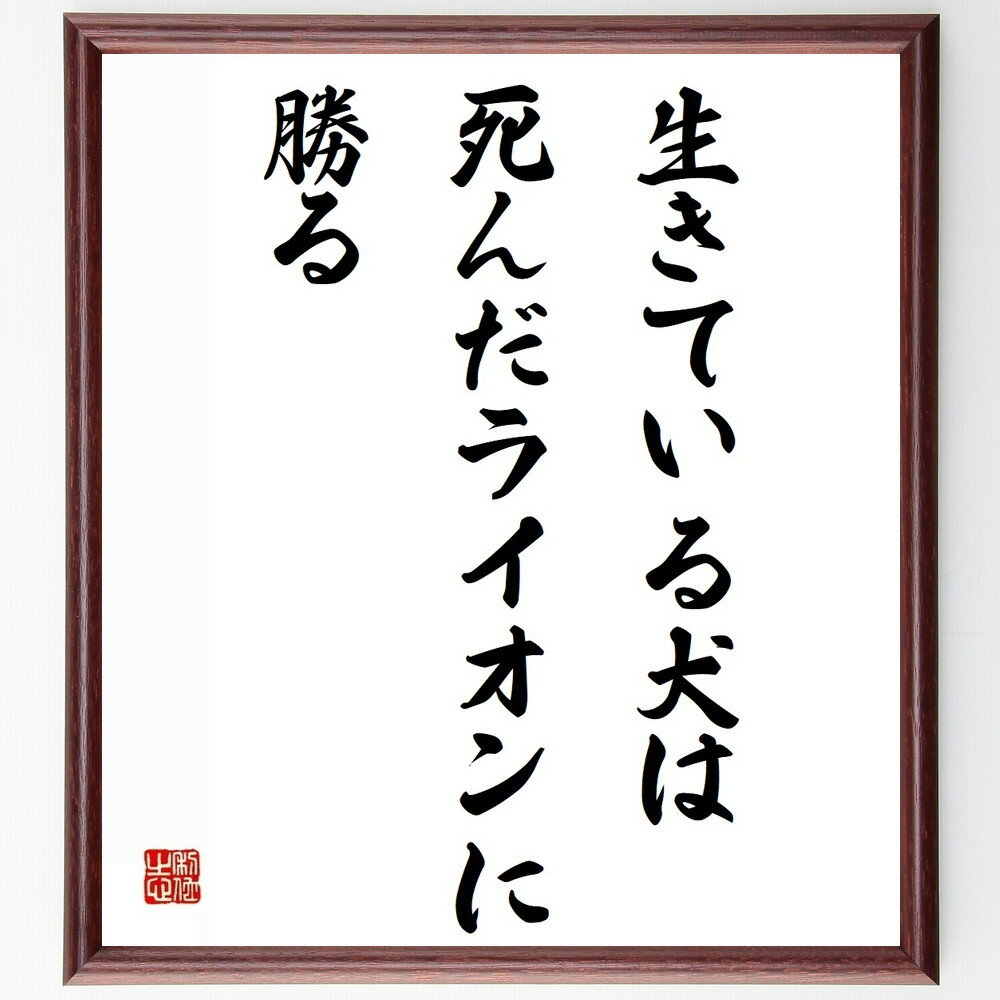 生きている犬は
死んだライオンに
勝る